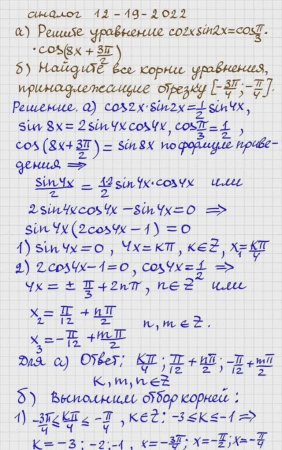 аналог 12-19-2022
а) Решите уравнение co2xsin2x=cosπ/3·
·cos(8x+3π/2)
б) Найдите все корни уравнения,
принадлежащие отрезку [-3π/4;-π/4].
Решение. а) cos2x·sin2x=1/2 sin4x,
sin8x=2sin4xcos4x, cosπ/3=1/2,
cos(8x+3π/2)=sin8x по формуле приве-
дения ⇒
sin4x/2=1/2 2 sin4x·cos4x или
2sin4xcos4x-sin4x=0 ⇒
sin4x(2cos4x-1)=0
1) sin4x=0, 4x=кπ, к∈Z, x₁=кπ/4
2) 2cos4x-1=0, cos4x=1/2 ⇒
4x=±π/3+2nπ, n∈Z или
x₂=π/12+nπ/2
x₃=-π/12+mπ/2 n,m∈Z.
Для а) Ответ: кπ/4; π/12+nπ/2; -π/12+mπ/2
к,m,n∈Z
б) Выполним отбор корней:
1) -3π/4≤кπ/4≤-π/4, к∈Z: -3≤к≤-1 ⇒
к=-3;-2;-1, x=-3π/4; x=-π/2; x=-π/4